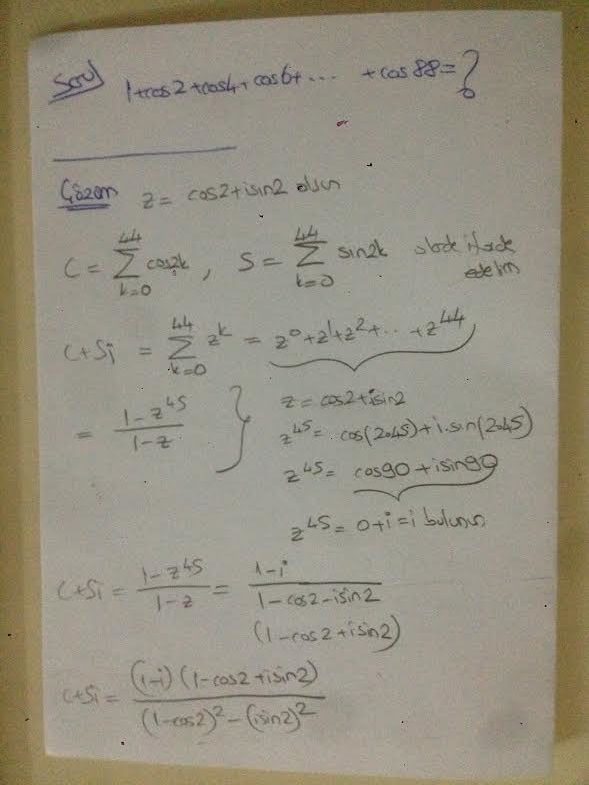 Soru 1+cos2+cos4+cos6+... +cos88=?
Çözüm z = cos2+isin2 olsun
C = ∑_{k=0}^{44} cos2k , S = ∑_{k=0}^{44} sin2k olarak ifade
edelim
C+Si = ∑_{k=0}^{44} z^k = z^0+z^1+z^2+...+z^44
= (1-z^45)/(1-z) } z = cos2+isin2
z^45 = cos(2.45)+i.sin(2.45)
z^45 = cos90+isin90
z^45 = 0+i=i bulunur
C+Si = (1-z^45)/(1-z) = (1-i)/(1-cos2-isin2)
(1-cos2+isin2)
C+Si = ((1-i)(1-cos2+isin2))/((1-cos2)^2-(isin2)^2)